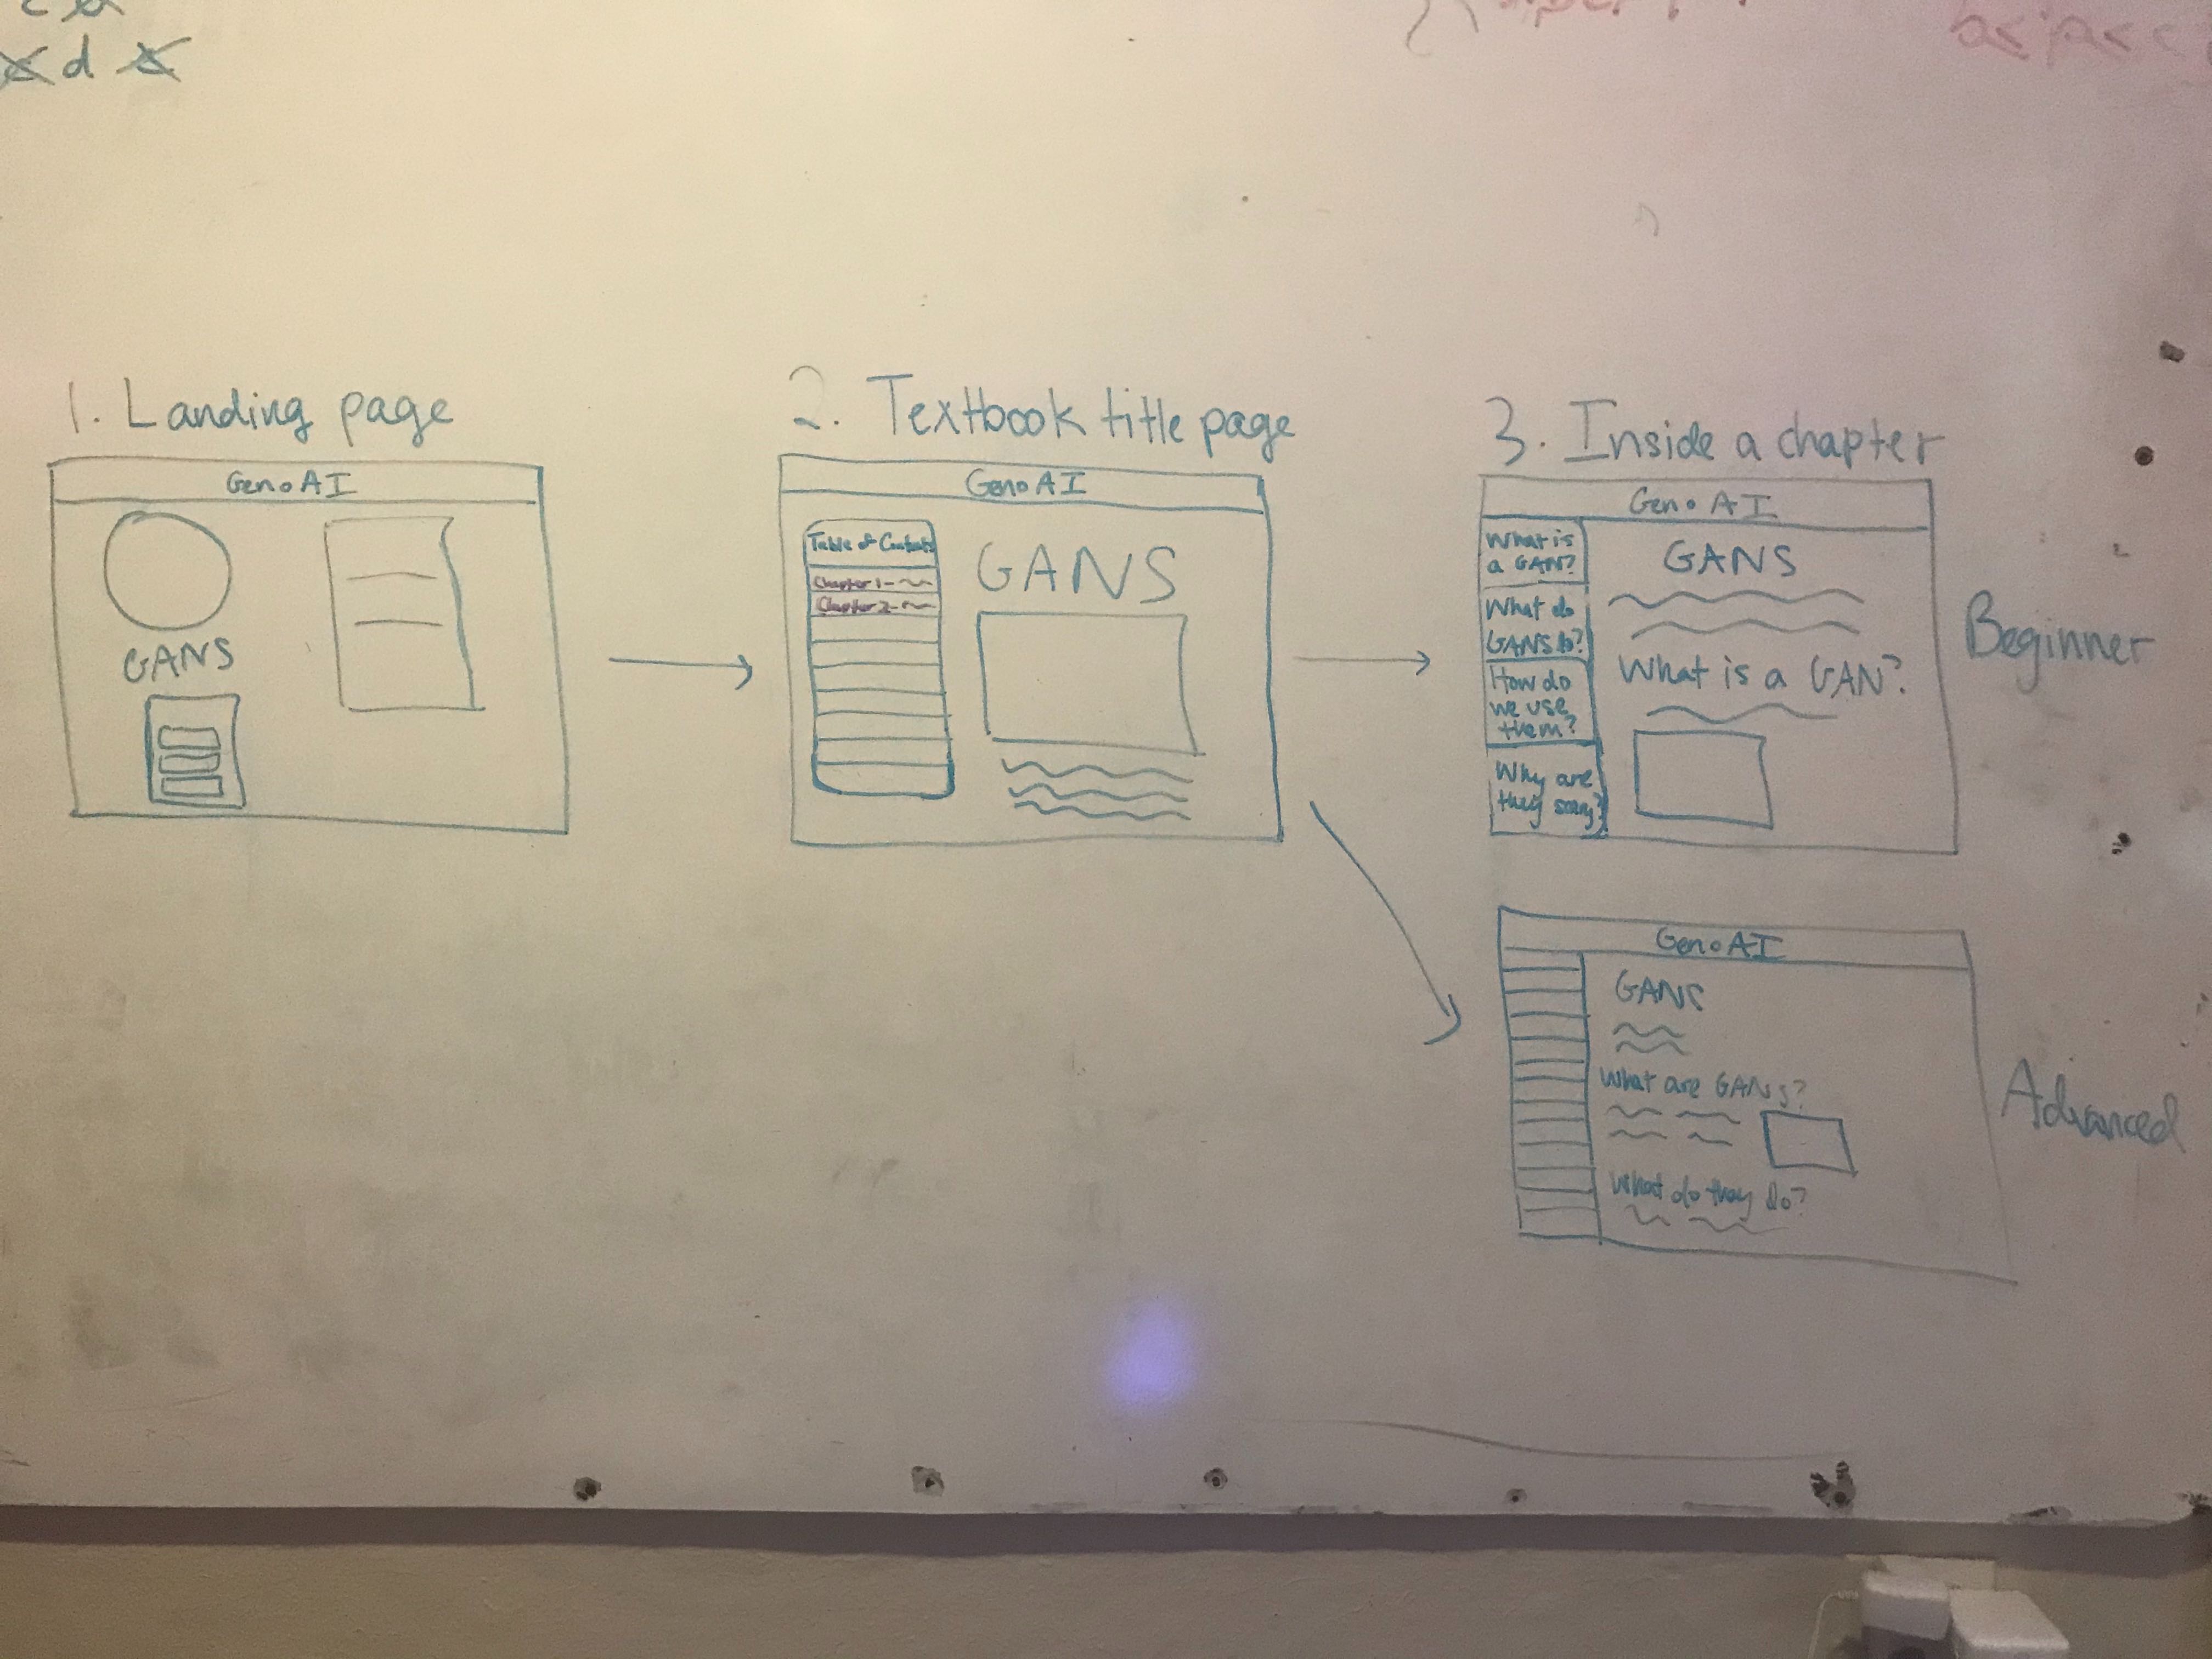 d
1. Landing page
GenoAI
GANS
2. Textbook title page
GenoAI
Table of Contents
Chapter 1-
Chapter 2-
GANS
3. Inside a chapter
GenoAI
What is
a GAN?
What do
GANS do?
How do
we use
them?
Why are
they scary?
GANS
What is a GAN?
Beginner
GenoAI
GANS
What are GANs?
What do they do?
Advanced